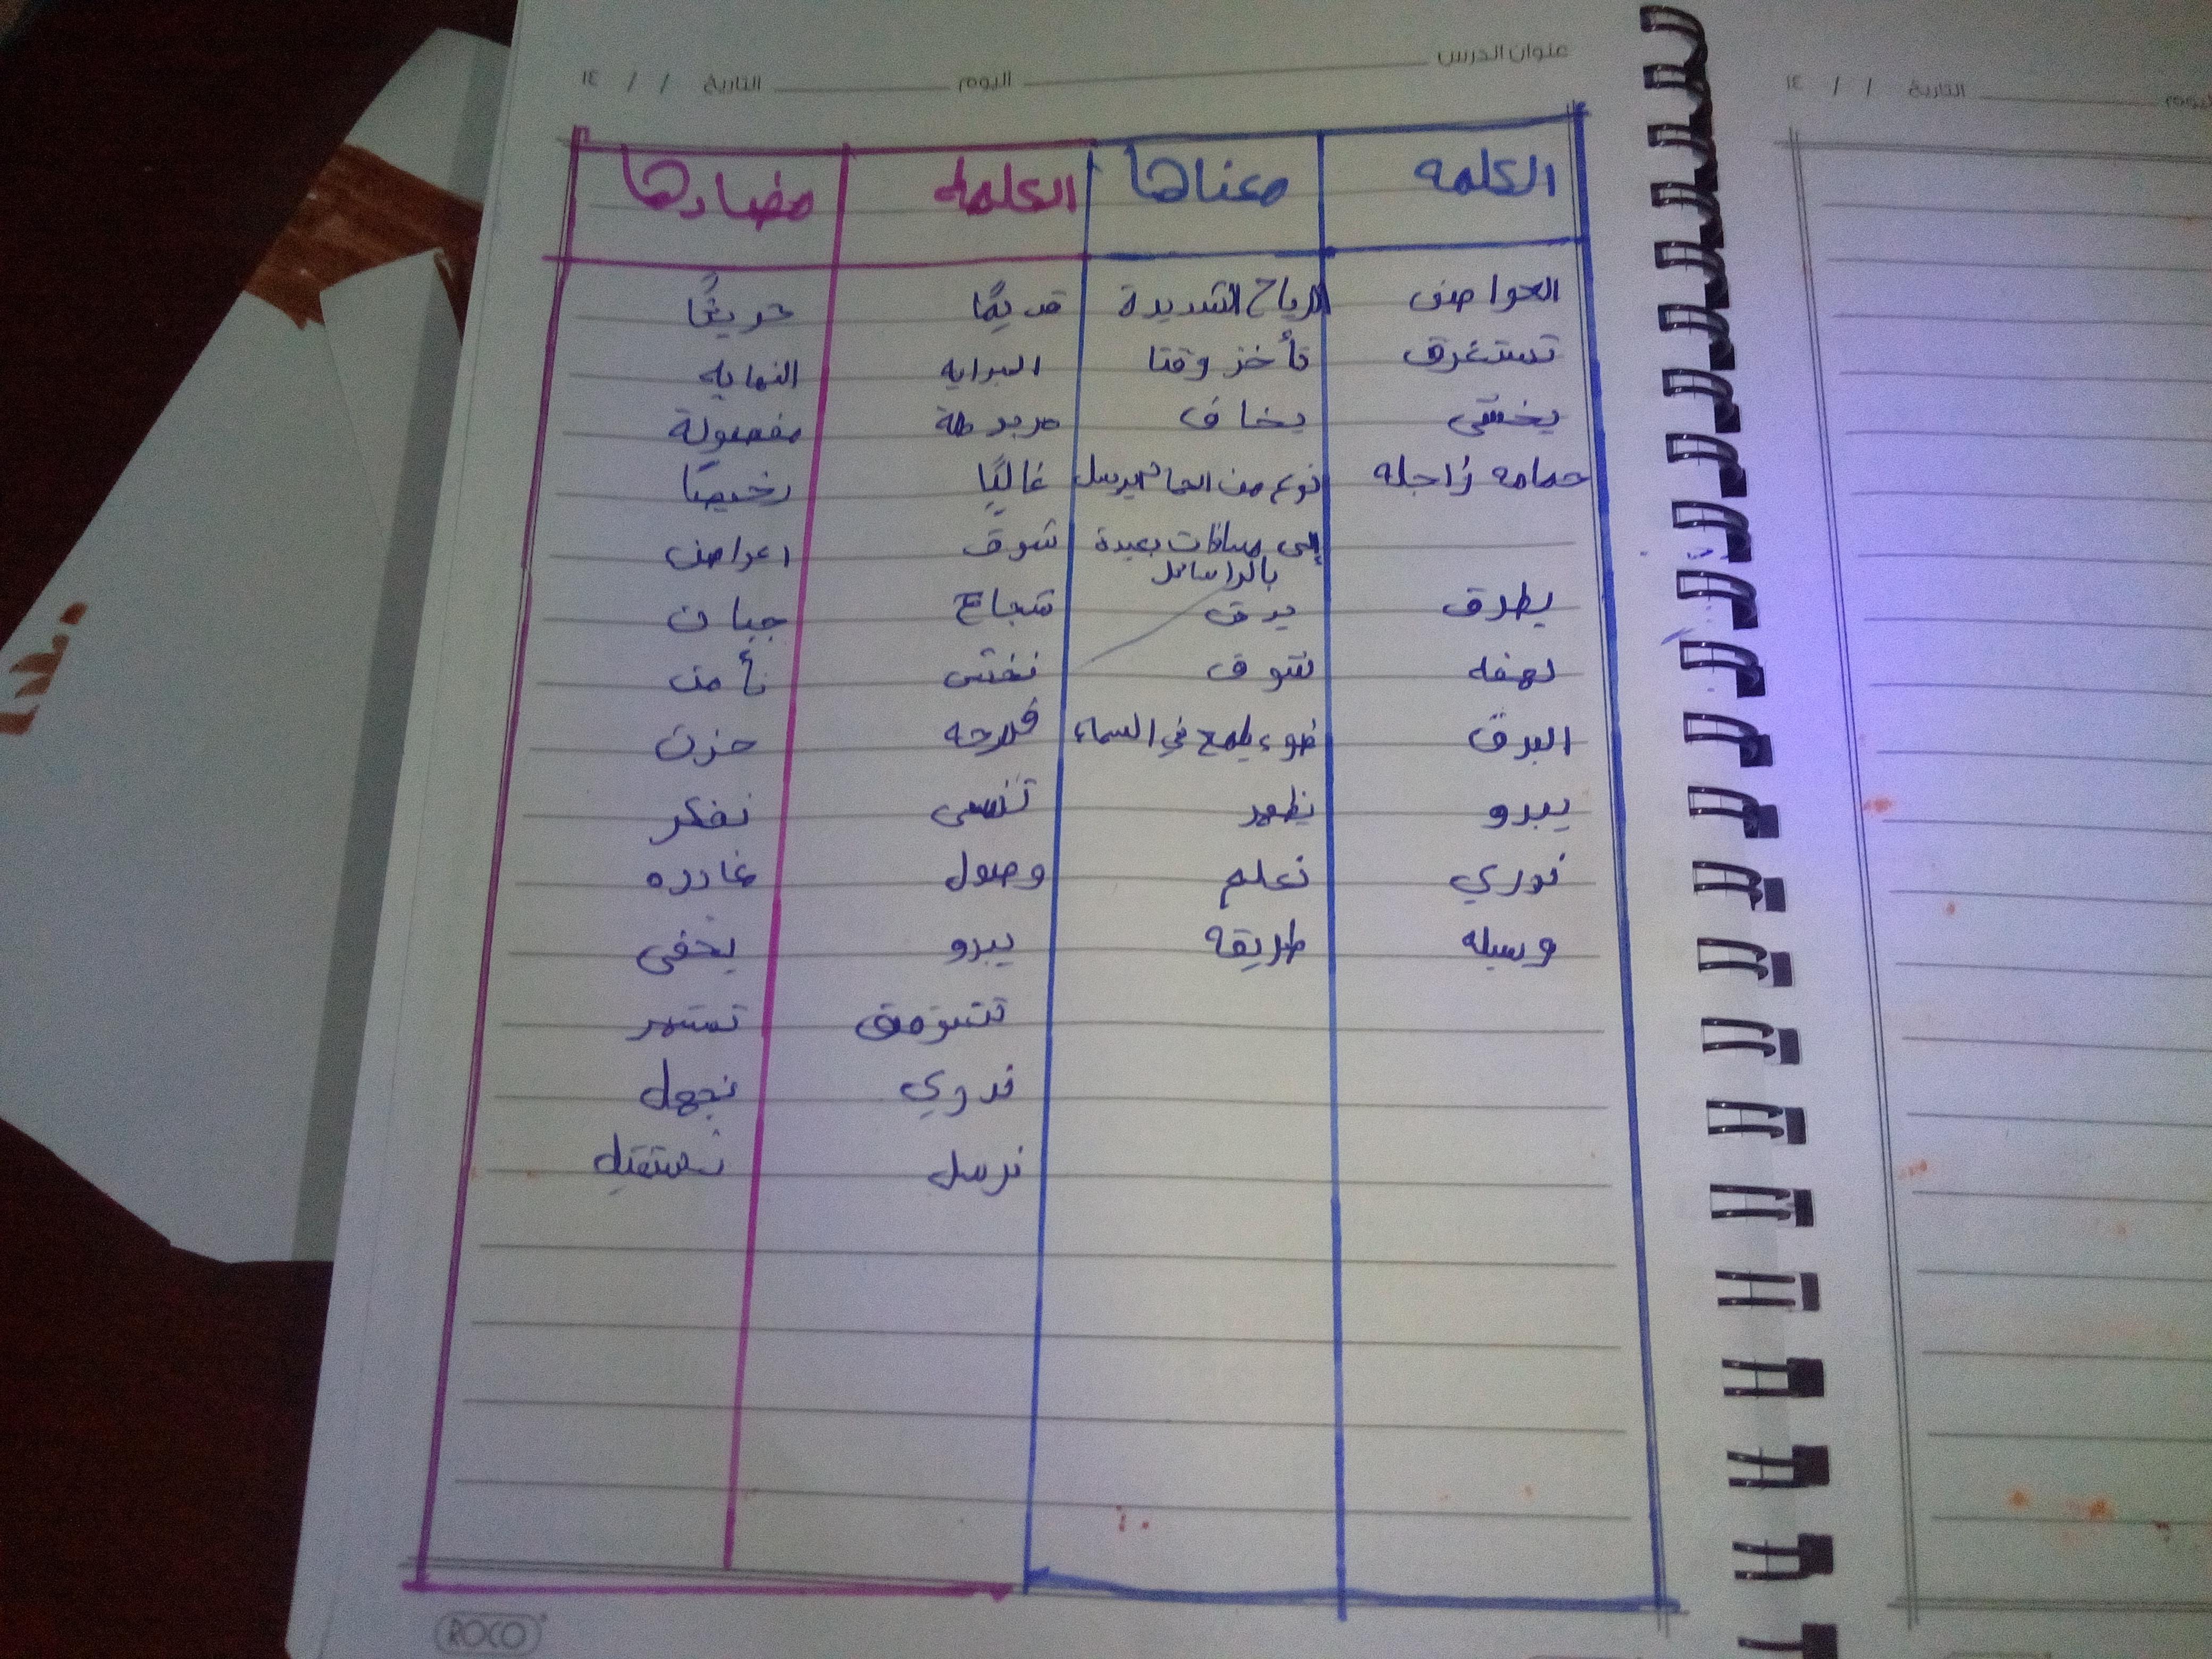 عنوان الدرس اليوم التاريخ / / ١٤
الكلمه معناها الكلمه مضادها
العواصف الرياح الشديدة قديمًا حديثًا
تستغرق تأخذ وقتا البدايه النهايه
يخشى يخاف مربوطة مفصولة
حمامه زاجله نوع من الحمام يرسل غاليًا رخيصًا
إلى مسافات بعيدة شوق اعراض
بالرسائل
يطرق يدق شجاع جبان
لهفه شوق نخشى نأمن
البرق ضوء يلمع في السماء فرحه حزن
يبدو يظهر تنسى نفكر
ندري نعلم وصول غادره
وسيله طريقه يبدو يخفى
تتوقف تستمر
ندري نجهل
نرسل نستقبل
ROCO
اليوم التاريخ / / ١٤